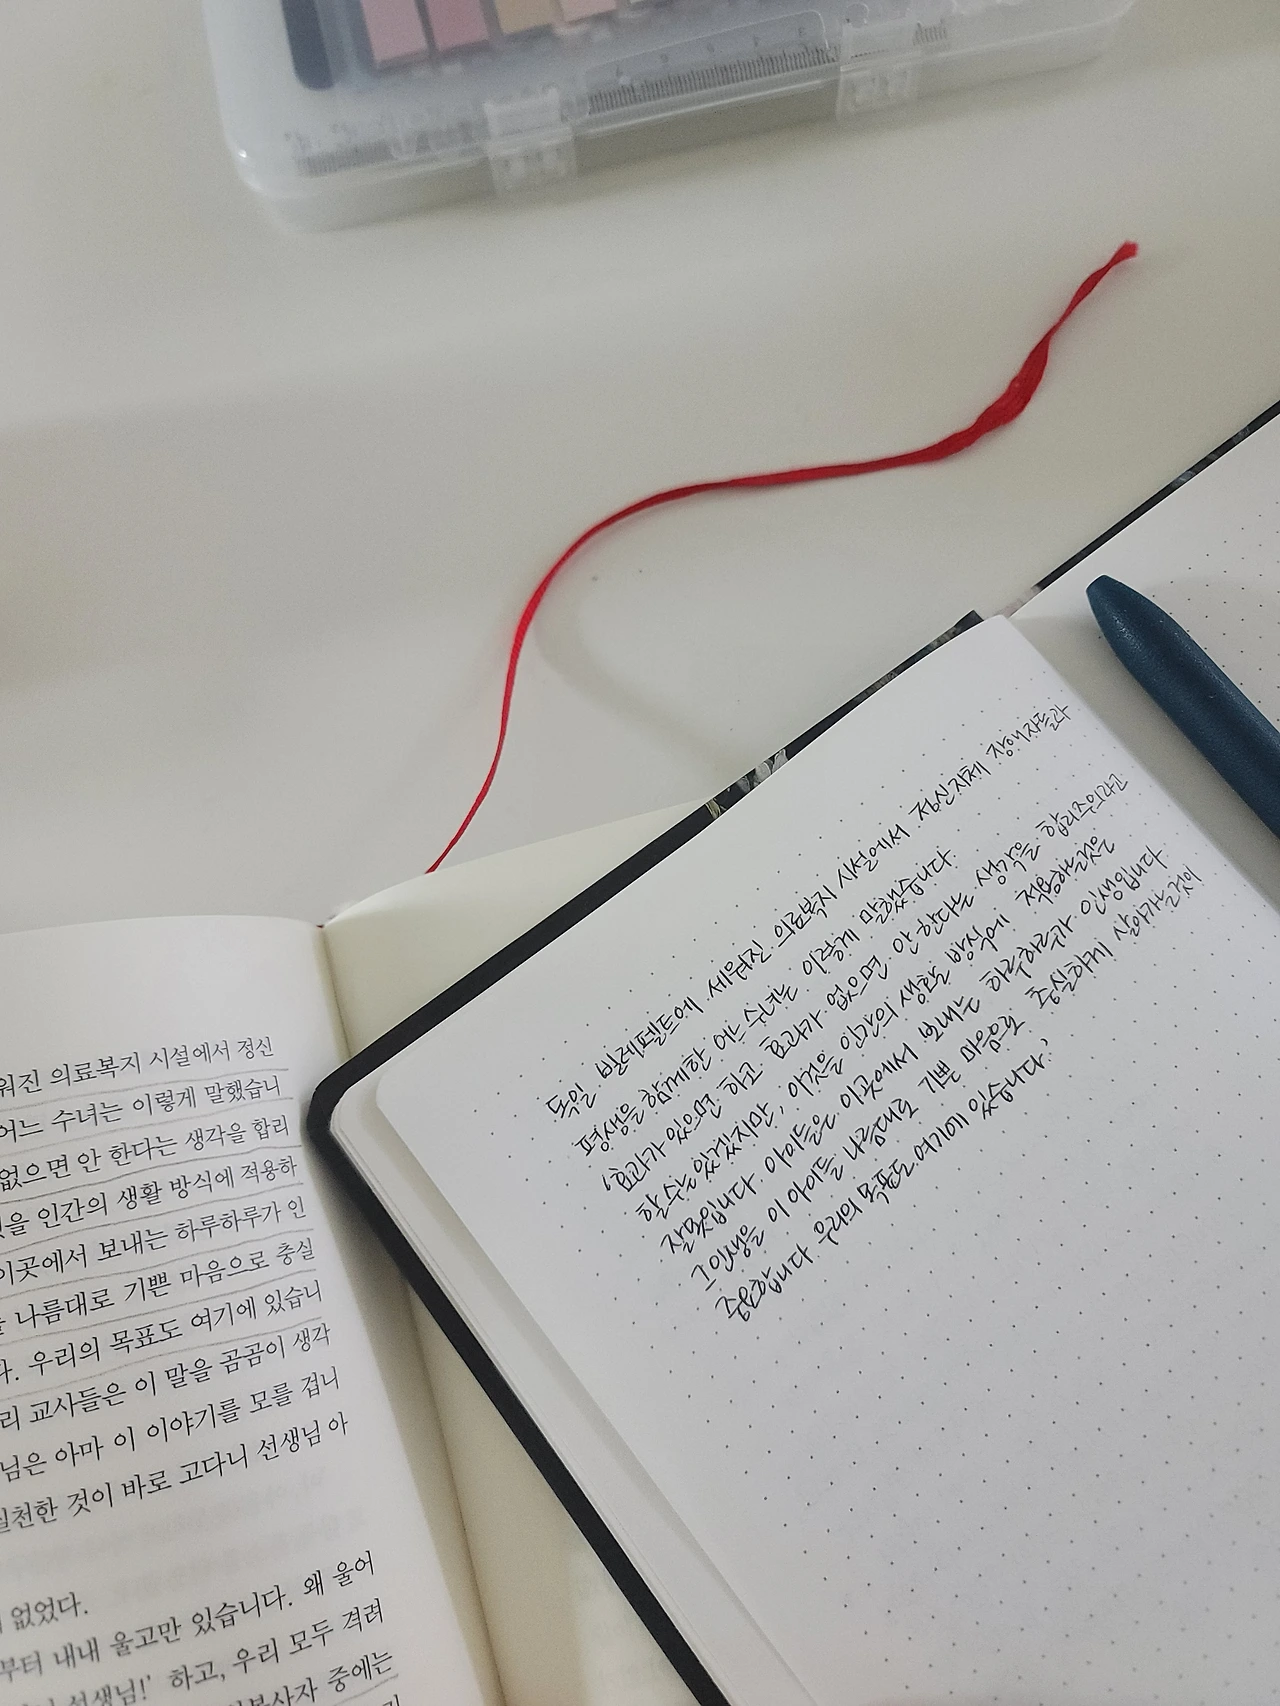 워진 의료복지 시설에서 정신
어느 수녀는 이렇게 말했습니
없으면 안 한다는 생각을 합리
을 인간의 생활 방식에 적용하
이곳에서 보내는 하루하루가 인
나름대로 기쁜 마음으로 충실
다. 우리의 목표도 여기에 있습니
리 교사들은 이 말을 곰곰이 생각
님은 아마 이 이야기를 모를 겁니
실천한 것이 바로 고다니 선생님 아
없었다.
부터 내내 울고만 있습니다. 왜 울어
선생님!' 하고, 우리 모두 격려
봉사자 중에는
독일 빌레펠드에 세워진 의료복지 시설에서 정신지체 장애자들과
평생을 함께한 어느 수녀는 이렇게 말했습니다.
'효과가 있으면 하고 효과가 없으면 안 한다는 생각을 합리주의라고
할 수는 있겠지만, 이것을 인간의 생활 방식에 적용하는것은
잘못입니다. 아이들은 이곳에서 보내는 하루하루가 인생입니다
그 인생을 이 아이들 나름대로 기쁜 마음으로 충실하게 살아가는것이
중요합니다 우리의 목표도 여기에 있습니다.'